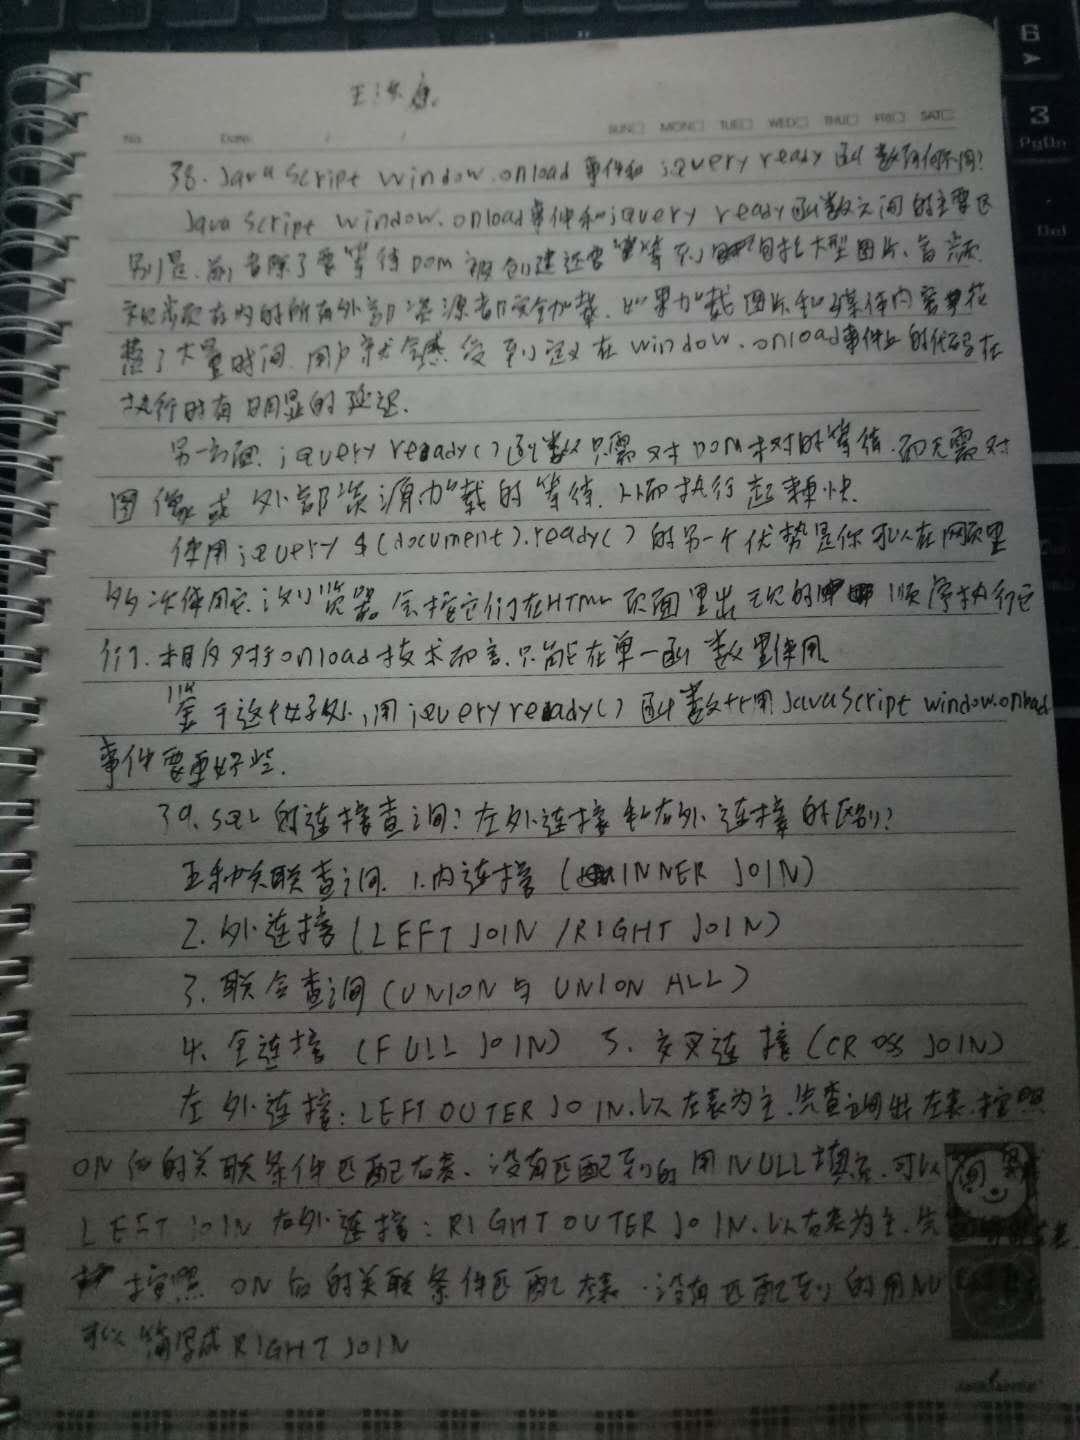 No. Date / / SUN□ MON□ TUE□ WED□ THU□ FRI□ SAT□
38. JavaScript window.onload 事件和 jquery ready 函数有何不同?
JavaScript window.onload事件和jquery ready函数之间的主要区
别是,前者除了要等待DOM被创建还要等到包括大型图片、音频
和视频在内的所有外部资源都完全加载.如果加载图片和媒体内容花
费了大量时间.用户就会感受到定义在window.onload事件上的代码在
执行时有明显的延迟.
另一方面.jquery ready()函数只需对DOM树的等待.而无需对
图像或外部资源加载的等待.从而执行起来更快.
使用jquery $(document).ready()的另一个优势是你可以在网页里
多次使用它.浏览器会按它们在HTML页面里出现的顺序执行它
们.相反对于onload技术而言.只能在单一函数里使用.
鉴于这个好处,用jquery ready()函数比用JavaScript window.onload
事件要更好些.
39. SQL的连接查询?左外连接和右外连接的区别?
五种关联查询. 1.内连接 (INNER JOIN)
2. 外连接 (LEFT JOIN /RIGHT JOIN)
3. 联合查询 (UNION与 UNION ALL)
4. 全连接 (FULL JOIN) 5. 交叉连接 (CROSS JOIN)
左外连接: LEFT OUTER JOIN.以左表为主.先查询出左表.按照
ON后的关联条件匹配右表.没有匹配到的用NULL填充.可以
LEFT JOIN 右外连接: RIGHT OUTER JOIN.以右表为主.先
按照 ON后的关联条件匹配左表.没有匹配到的用NU
可以简写成 RIGHT JOIN